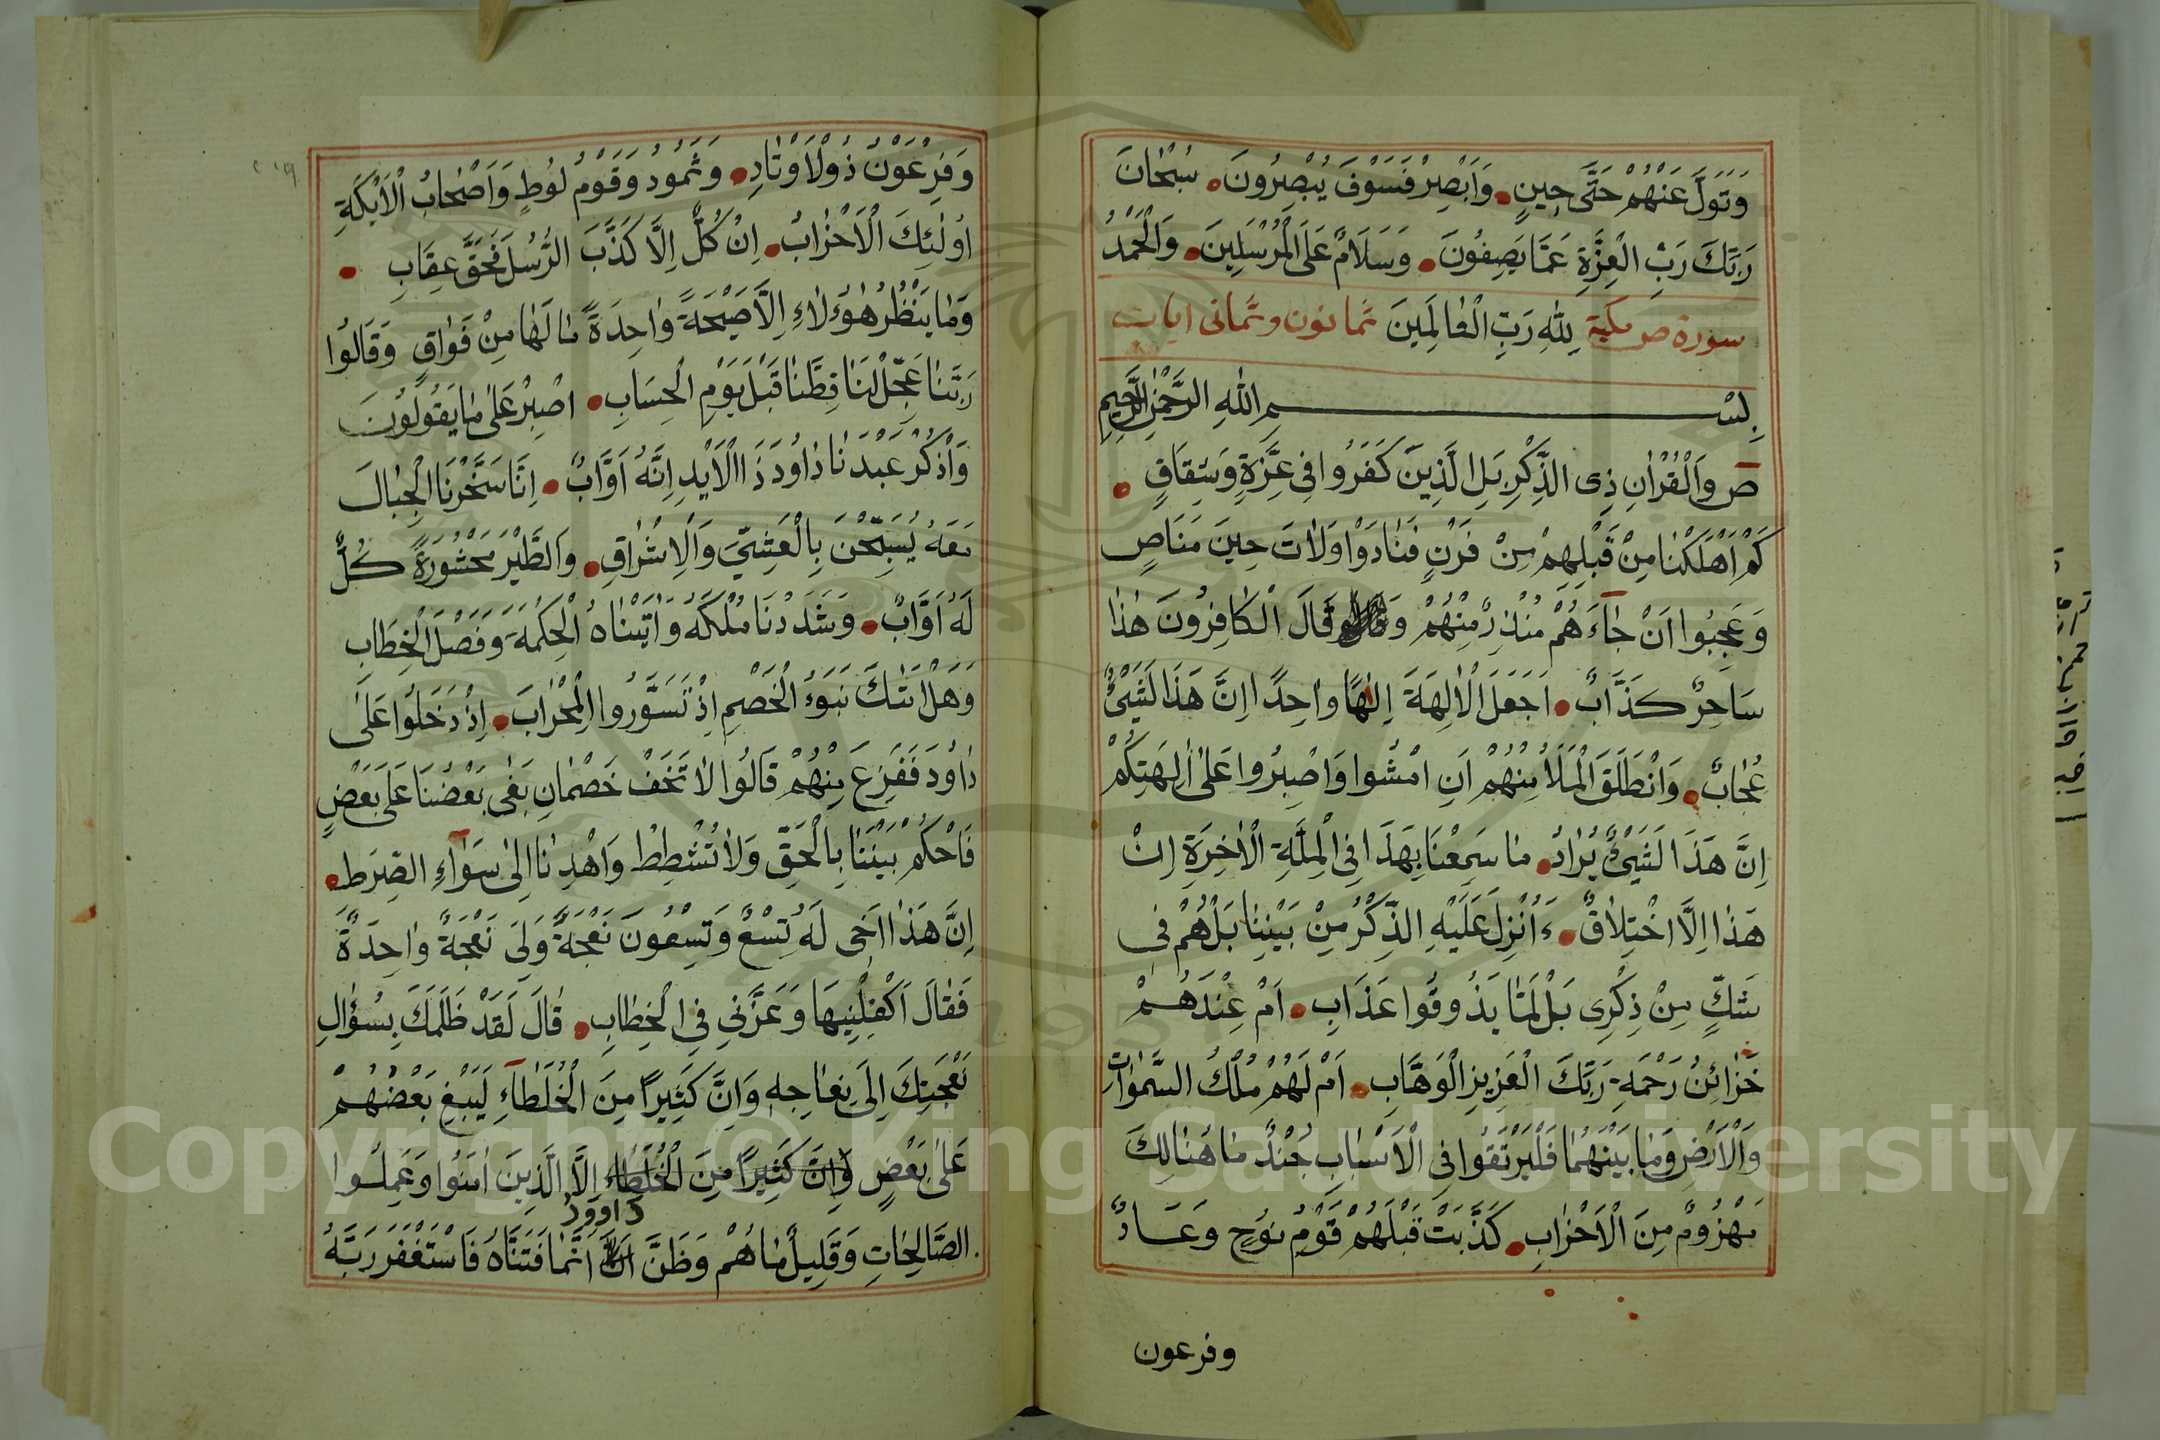 وَتَوَلَّ عَنْهُمْ حَتَّى حِينٍ وَاَبْصِرْ فَسَوْفَ يُبْصِرُونَ سُبْحَانَ
رَبِّكَ رَبِّ الْعِزَّةِ عَمَّا يَصِفُونَ وَسَلَامٌ عَلَى الْمُرْسَلِينَ وَالْحَمْدُ
سورة ص مكية لِلّٰهِ رَبِّ الْعَالَمِينَ ثمانون وثمانى ايات
بِسْمِ اللّٰهِ الرَّحْمٰنِ الرَّحِيمِ
صٓ وَالْقُرْاٰنِ ذِى الذِّكْرِ بَلِ الَّذِينَ كَفَرُوا فِى عِزَّةٍ وَشِقَاقٍ
كَمْ اَهْلَكْنَا مِنْ قَبْلِهِمْ مِنْ قَرْنٍ فَنَادَوْا وَلَاتَ حِينَ مَنَاصٍ
وَعَجِبُوا اَنْ جَاءَهُمْ مُنْذِرٌ مِنْهُمْ وَقَالَ الْكَافِرُونَ هٰذَا
سَاحِرٌ كَذَّابٌ اَجَعَلَ الْاٰلِهَةَ اِلٰهًا وَاحِدًا اِنَّ هَذَا لَشَيْئٌ
عُجَابٌ وَانْطَلَقَ الْمَلَاُ مِنْهُمْ اَنِ امْشُوا وَاصْبِرُوا عَلٰى اٰلِهَتِكُمْ
اِنَّ هَذَا لَشَيْئٌ يُرَادُ مَا سَمِعْنَا بِهَذَا فِى الْمِلَّةِ الْاٰخِرَةِ اِنْ
هَذَا اِلَّا اخْتِلَاقٌ ءَاُنْزِلَ عَلَيْهِ الذِّكْرُ مِنْ بَيْنِنَا بَلْ هُمْ فِى
شَكٍّ مِنْ ذِكْرِى بَلْ لَمَّا يَذُوقُوا عَذَابِ اَمْ عِنْدَهُمْ
خَزَائِنُ رَحْمَةِ رَبِّكَ الْعَزِيزِ الْوَهَّابِ اَمْ لَهُمْ مُلْكُ السَّمٰوَاتِ
وَالْاَرْضِ وَمَا بَيْنَهُمَا فَلْيَرْتَقُوا فِى الْاَسْبَابِ جُنْدٌ مَا هُنَالِكَ
مَهْزُومٌ مِنَ الْاَحْزَابِ كَذَّبَتْ قَبْلَهُمْ قَوْمُ نُوحٍ وَعَادٌ
وفرعون
وَفِرْعَوْنُ ذُو الْاَوْتَادِ وَثَمُودُ وَقَوْمُ لُوطٍ وَاَصْحَابُ الْاَيْكَةِ
اُولٰئِكَ الْاَحْزَابُ اِنْ كُلٌّ اِلَّا كَذَّبَ الرُّسُلَ فَحَقَّ عِقَابِ
وَمَا يَنْظُرُ هٰؤُلَاءِ اِلَّا صَيْحَةً وَاحِدَةً مَا لَهَا مِنْ فَوَاقٍ وَقَالُوا
رَبَّنَا عَجِّلْ لَنَا قِطَّنَا قَبْلَ يَوْمِ الْحِسَابِ اصْبِرْ عَلٰى مَا يَقُولُونَ
وَاذْكُرْ عَبْدَنَا دَاوُدَ ذَا الْاَيْدِ اِنَّهُ اَوَّابٌ اِنَّا سَخَّرْنَا الْجِبَالَ
مَعَهُ يُسَبِّحْنَ بِالْعَشِيِّ وَالْاِشْرَاقِ وَالطَّيْرَ مَحْشُورَةً كُلٌّ
لَهُ اَوَّابٌ وَشَدَدْنَا مُلْكَهُ وَاٰتَيْنَاهُ الْحِكْمَةَ وَفَصْلَ الْخِطَابِ
وَهَلْ اَتٰكَ نَبَؤُا الْخَصْمِ اِذْ تَسَوَّرُوا الْمِحْرَابَ اِذْ دَخَلُوا عَلٰى
دَاوُدَ فَفَزِعَ مِنْهُمْ قَالُوا لَا تَخَفْ خَصْمَانِ بَغٰى بَعْضُنَا عَلَى بَعْضٍ
فَاحْكُمْ بَيْنَنَا بِالْحَقِّ وَلَا تُشْطِطْ وَاهْدِنَا اِلٰى سَوَاءِ الصِّرَطِ
اِنَّ هَذَا اَخِى لَهُ تِسْعٌ وَتِسْعُونَ نَعْجَةً وَلِيَ نَعْجَةٌ وَاحِدَةٌ
فَقَالَ اَكْفِلْنِيهَا وَعَزَّنِي فِي الْخِطَابِ قَالَ لَقَدْ ظَلَمَكَ بِسُؤَالِ
نَعْجَتِكَ اِلَى نِعَاجِهِ وَاِنَّ كَثِيرًا مِنَ الْخُلَطَاءِ لَيَبْغِ بَعْضُهُمْ
عَلٰى بَعْضٍ وَاِنَّ كَثِيرًا مِنَ الْخُلَطَاءِ اِلَّا الَّذِينَ اٰمَنُوا وَعَمِلُوا
دَاوُودُ
الصَّالِحَاتِ وَقَلِيلٌ مَا هُمْ وَظَنَّ اَنَّمَا فَتَنَّاهُ فَاسْتَغْفَرَ رَبَّهُ
Copyright © King Saud University